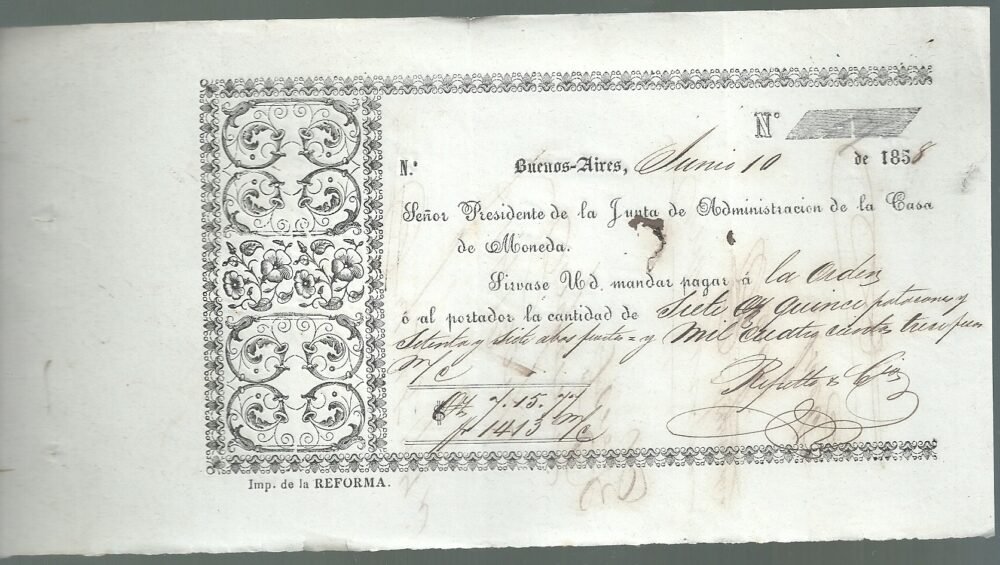 Nº
N.º Buenos-Aires, Junio 10 de 1858
Señor Presidente de la Junta de Administracion de la Casa
de Moneda.
Sirvase Ud. mandar pagar á la orden
ó al portador la cantidad de Siete Oz quince patacones y
Setenta y siete abos fuerte = y Mil Cuatro cientos trece pesos
m/c
$ Oz 7. 15. 77
1413 m/c
Repetto & Cia
Imp. de la REFORMA.